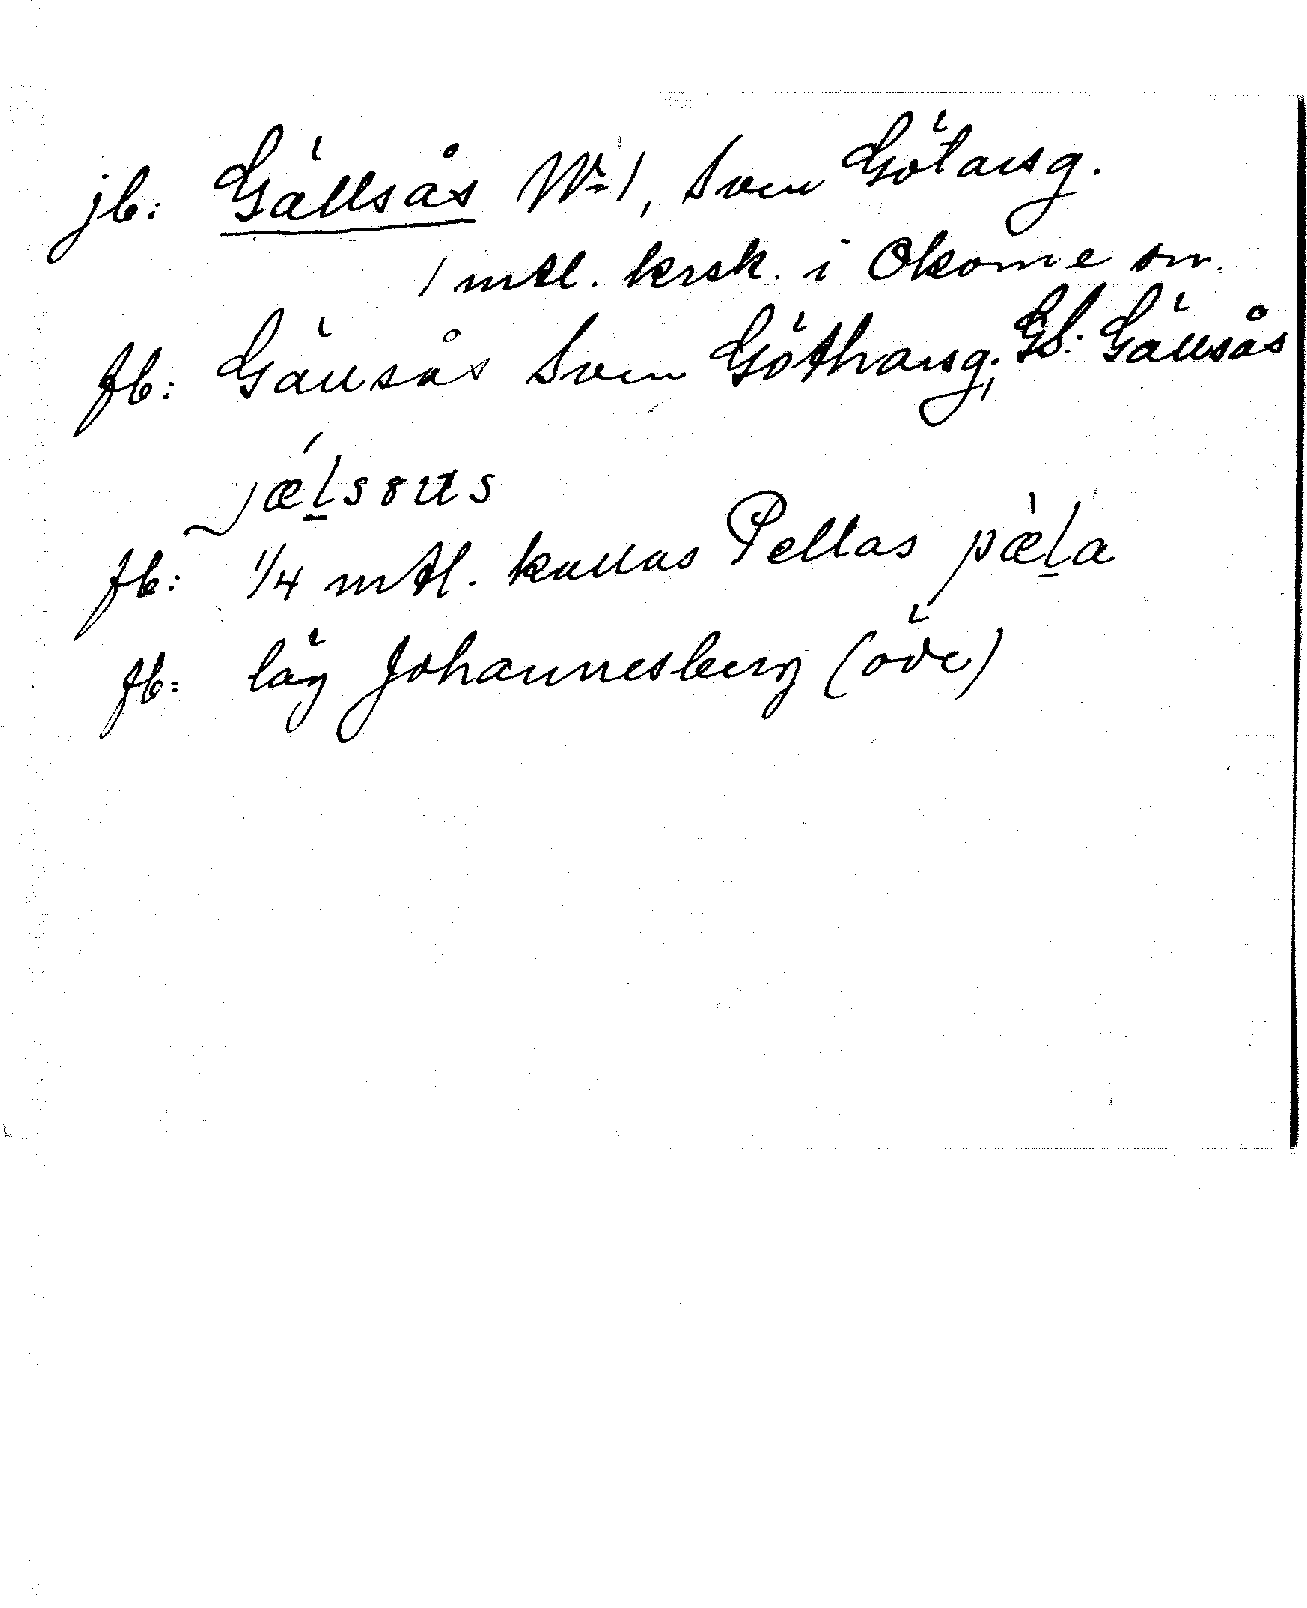 jb: Gällsås No 1, Sven Götarsg.
1 mtl. krsk. i Okome sn.
fb: Gällsås Sven Götharsg; GS: Gällsås
jǽlsous
fb: 1/4 mtl. kallas Pellas pæ̀la
fb: låg Johannesberg (öde)